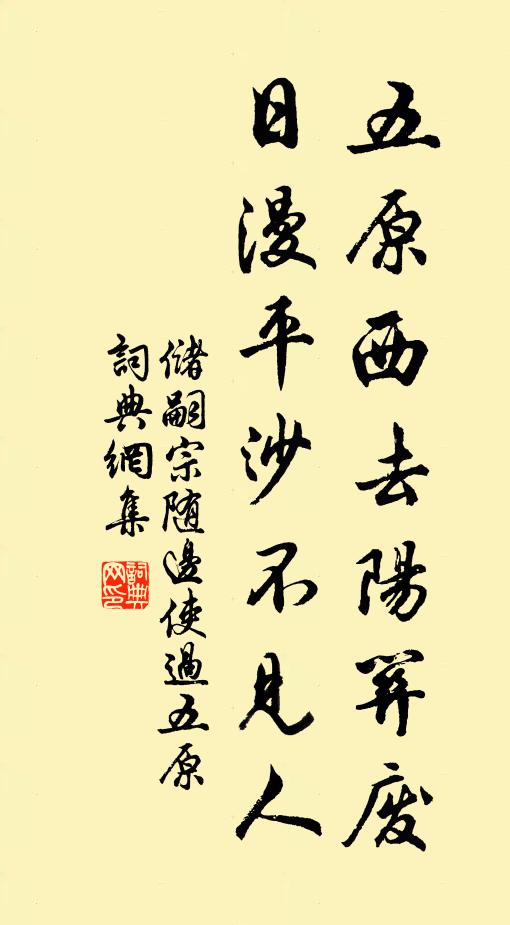 五原西去陽関廢
日漫平沙不見人
儲嗣宗随邊使過五原
詞典網集
詞典網印